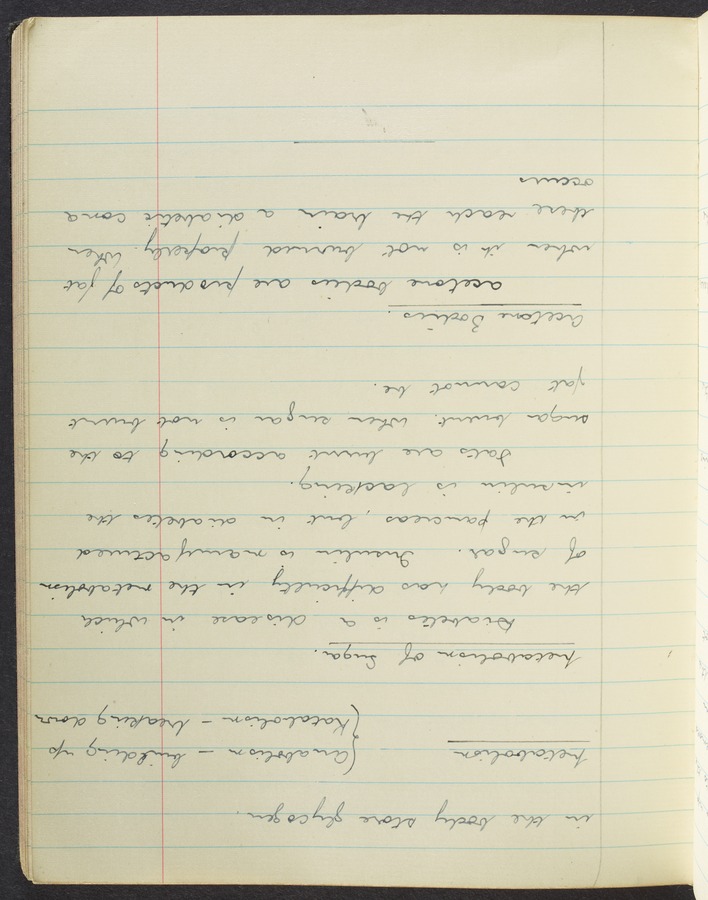 in the body store glycogen.
Metabolism {Anabolism – building up
{Katabolism – breaking down
Metabolism of Sugar.
Diabetes is a disease in which
the body has difficulty in the metabolism
of sugar. Insulin is manufactured
in the pancreas, but in diabetes the
insulin is lacking.
Fats are burnt according to the
sugar burnt. When sugar is not burnt
fat cannot be.
Acetone Bodies.
Acetone bodies are products of fat
when it is not burned properly. When
these reach the brain a diabetic coma
occurs